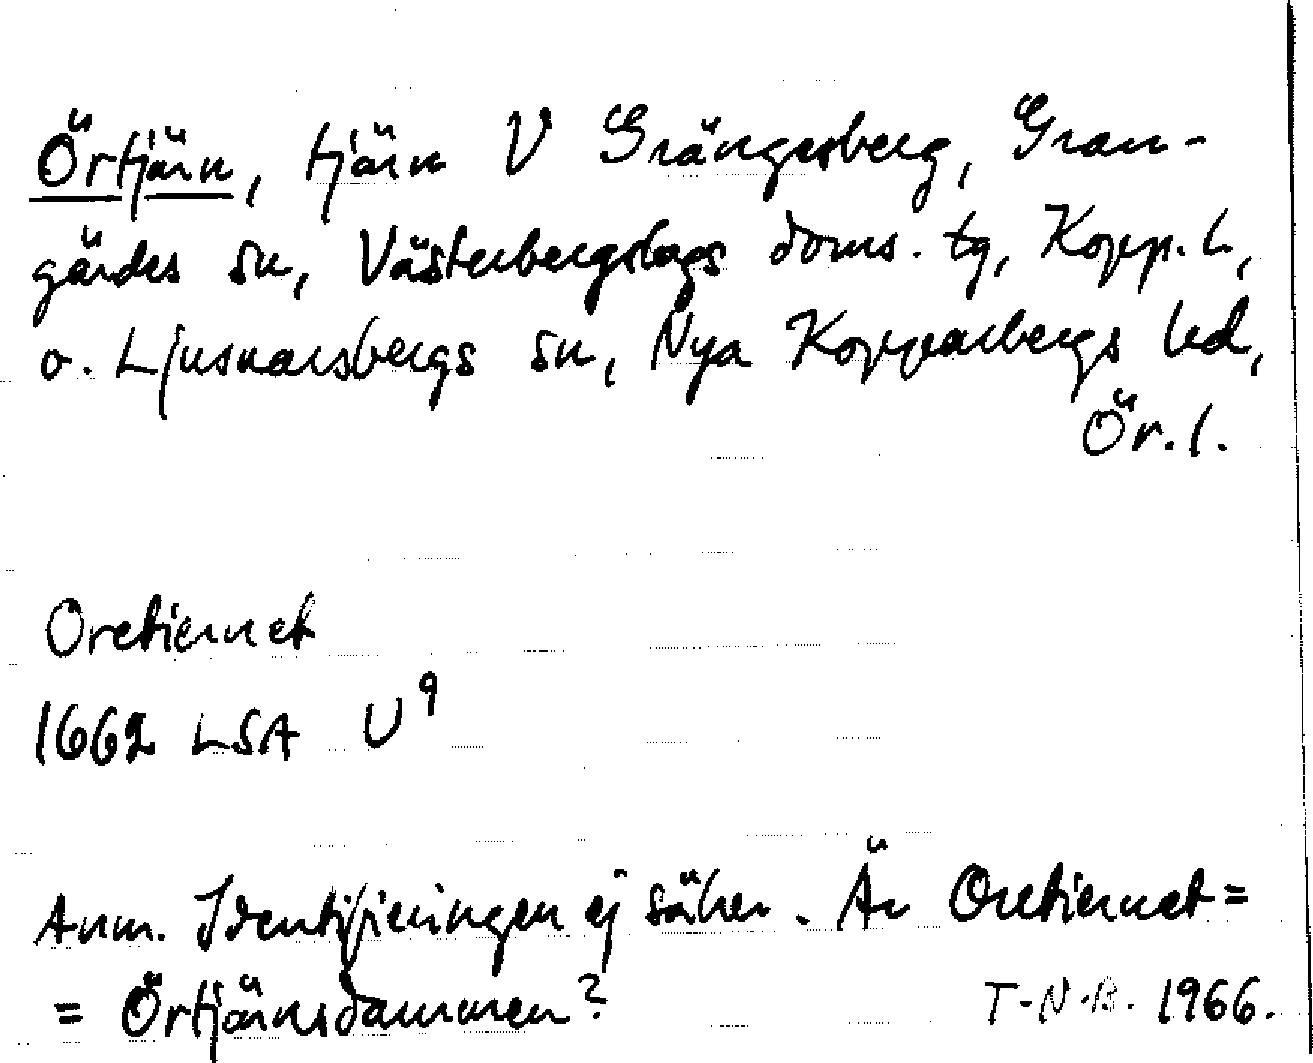 Örtjärn, tjärn V Grängesberg, Gran-
gärdes sn, Västerbergslags doms. tg, Kopp. l,
o. Ljusnarsbergs sn, Nya Kopparbergs bd,
Ör. l.
Oretiernet
1662 LSA U9
Anm. Identifieringen ej säker. Är Oretiernet =
= Örtjärnsdammen?
T-N-B. 1966.